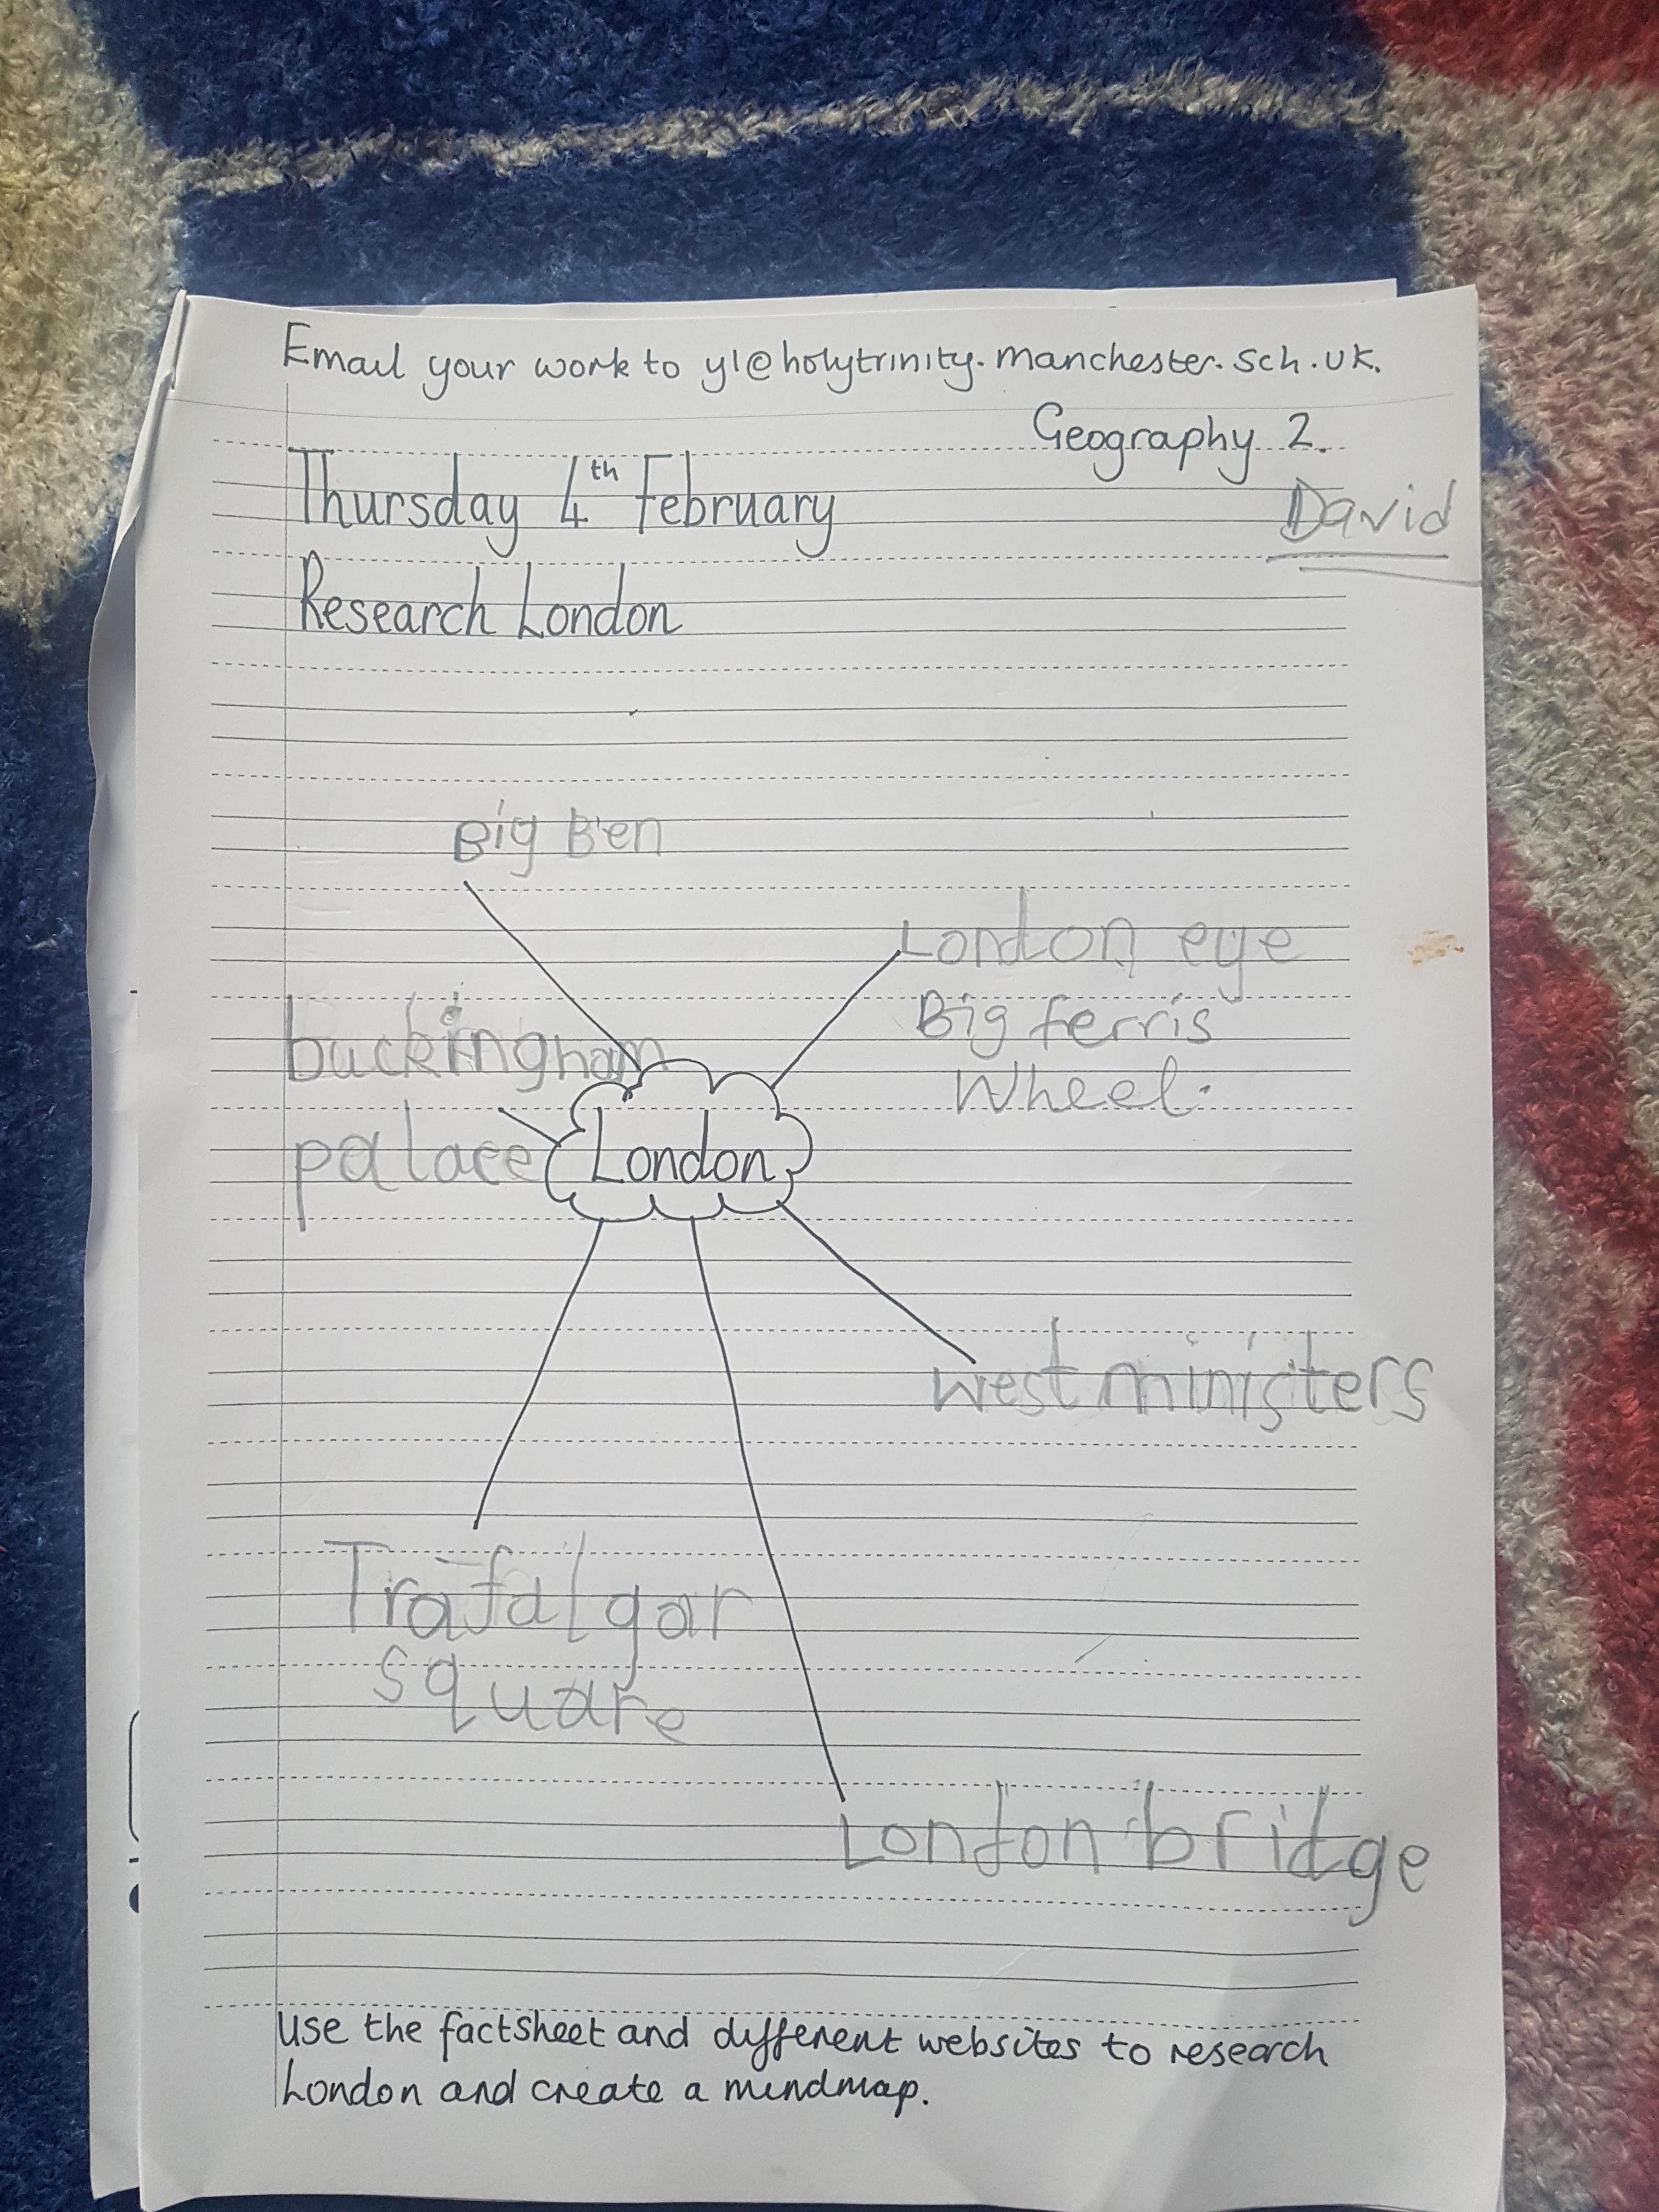 Email your work to y1@holytrinity.manchester.sch.uk.
Geography 2.
Thursday 4th February
David
Research London
Big Ben
London eye
Big ferris
Wheel.
buckingham
palace
London
westministers
Trafalgar
square
London bridge
Use the factsheet and different websites to research
London and create a mindmap.